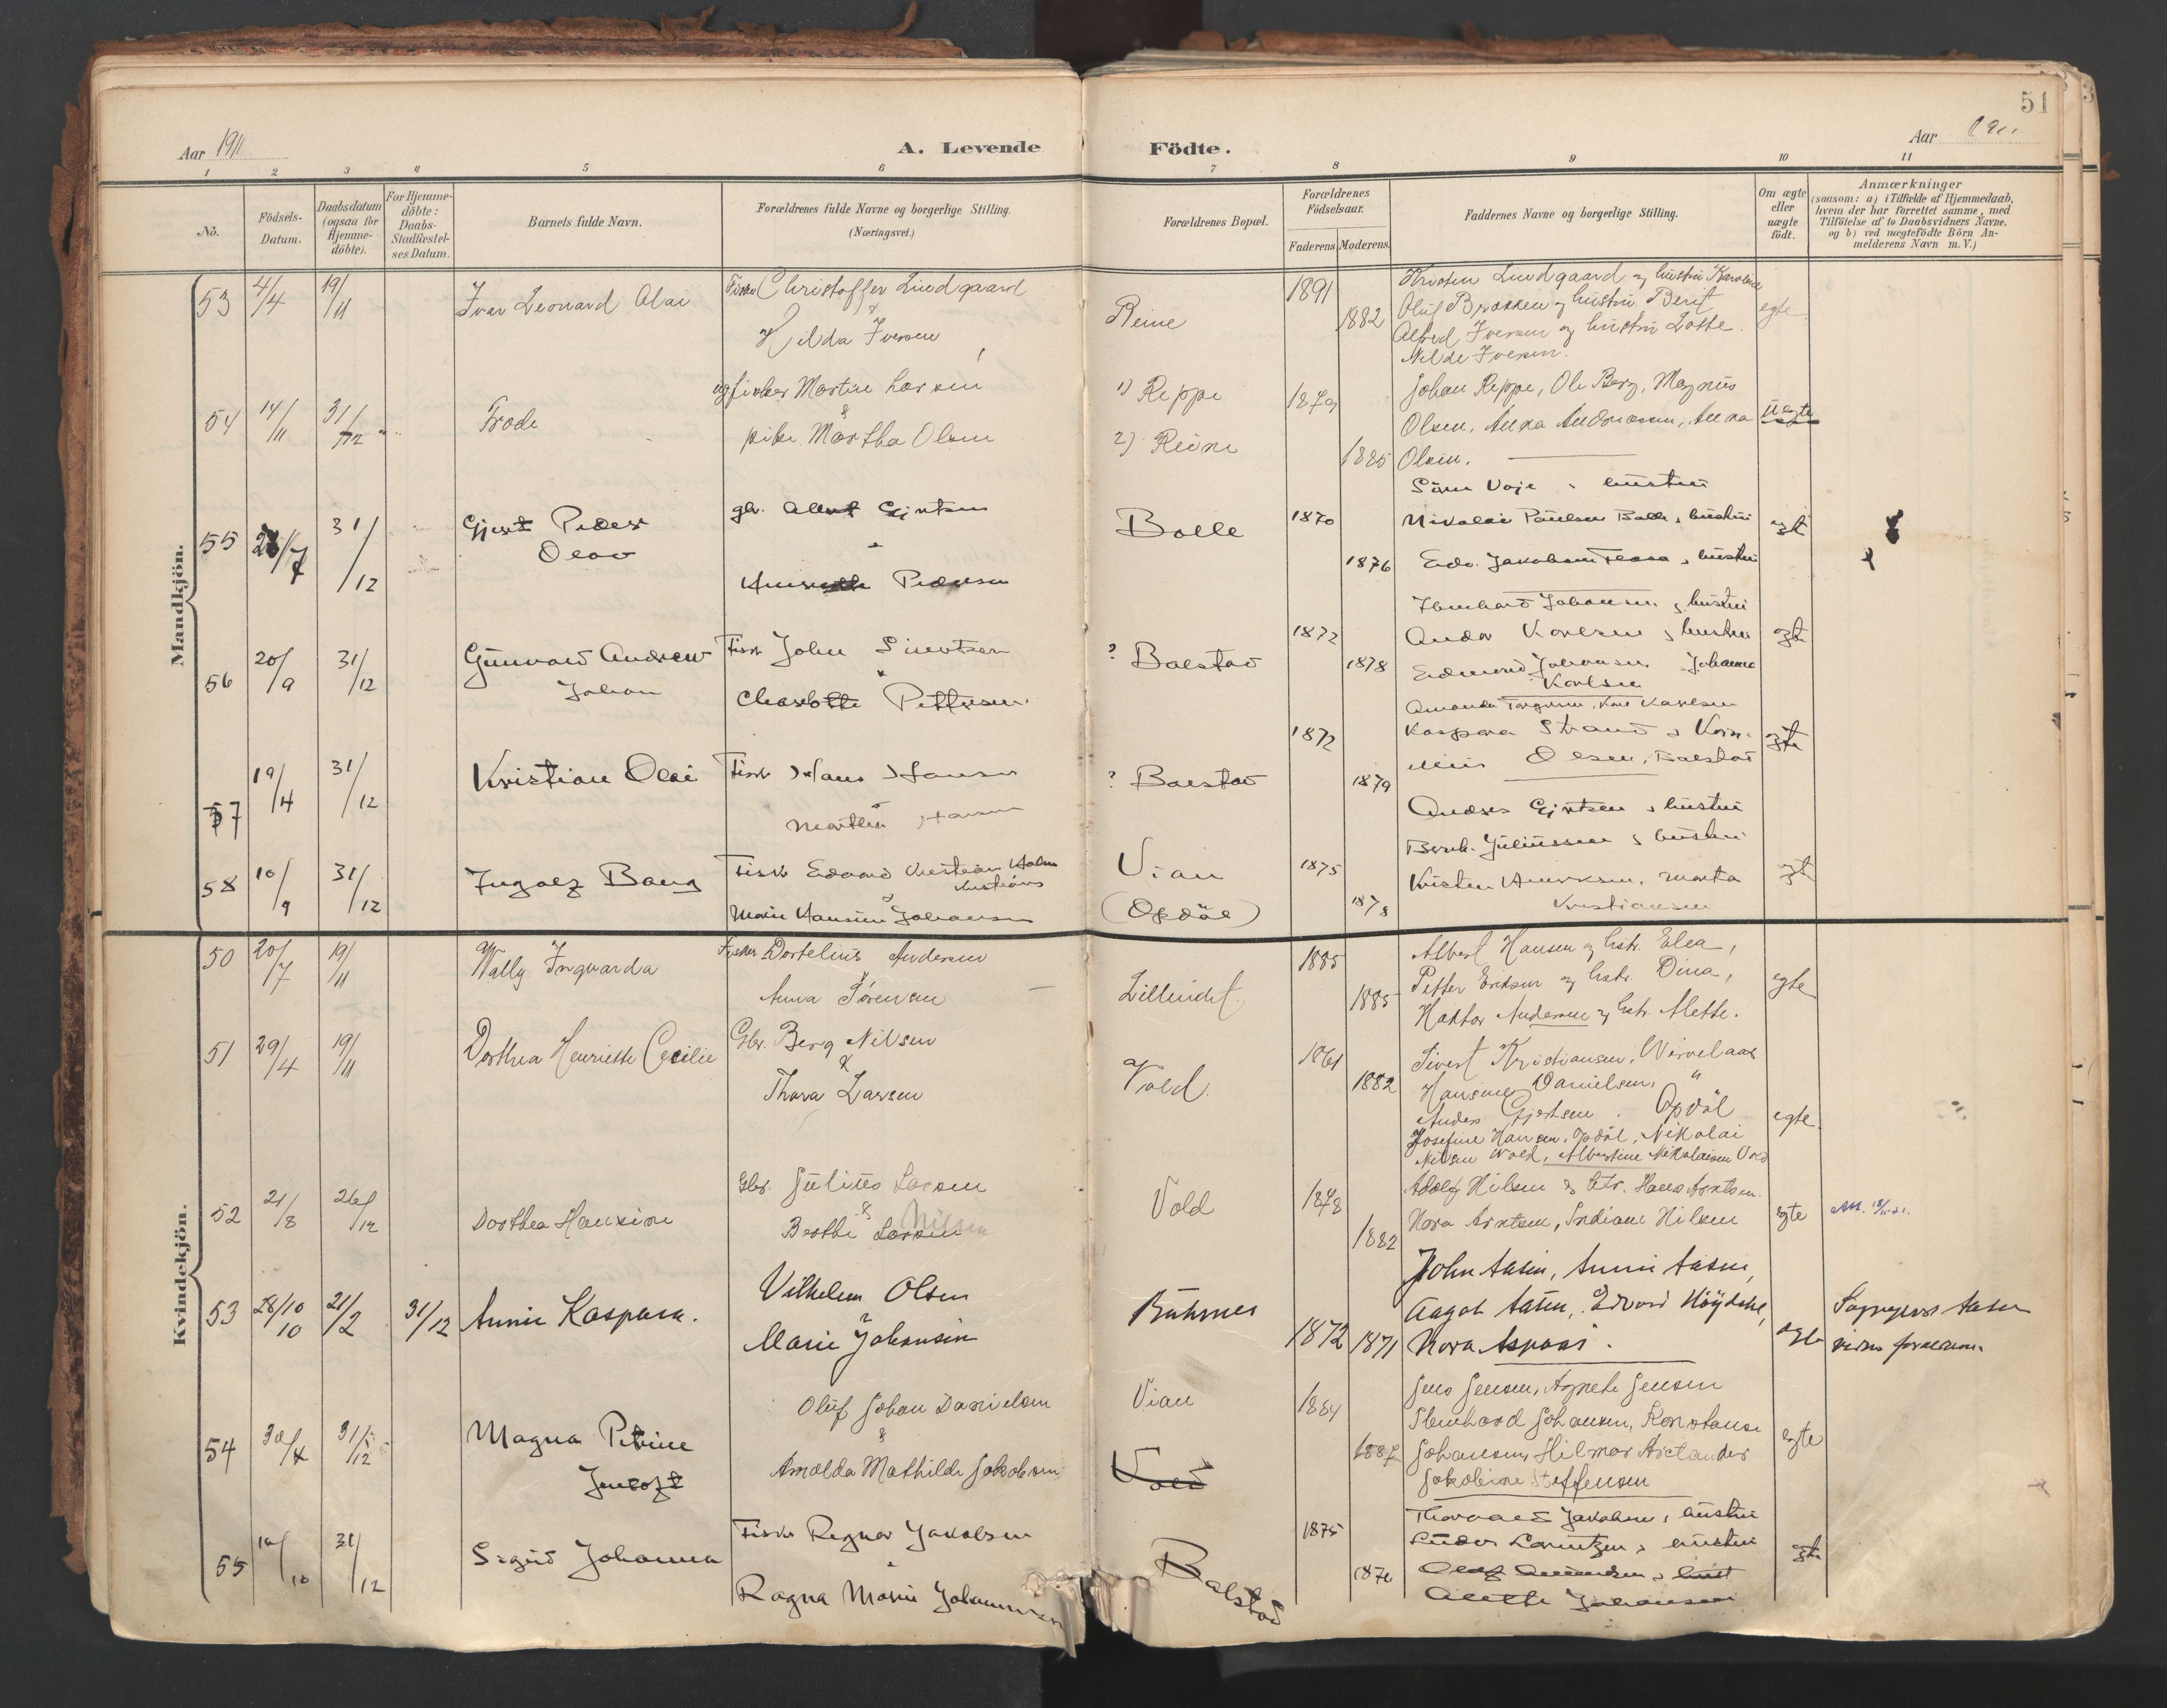 51
Aar 1911
A. Levende Födte.
Aar 1911
1 2 3 4 5 6 7 8 9 10 11
No.
Födsels-
Datum.
Daabsdatum
(ogsaa for
Hjemme-
döbte).
For Hjemme-
döbte:
Daabs-
Stadfæstel-
ses Datum.
Barnets fulde Navn.
Forældrenes fulde Navne og borgerlige Stilling.
(Næringsvei.)
Forældrenes Bopæl.
Forældrenes
Födselsaar.
Faderens Moderens
Faddernes Navne og borgerlige Stilling.
Om ægte
eller
uægte
födt.
Anmærkninger
(saasom: a) i Tilfælde af Hjemmedaab,
hvem der har forrettet samme, med
Tilföielse af to Daabsvidners Navne,
og b) ved uægtefödte Börn An-
melderens Navn m. V.)
Mandkjön.
53 4/4 19/11 Ivar Leonard Olai
Fisker Christoffer Lindgaard
&
Hilda Iversen
Reine
1891 1882
Kristen Lindgaard og hustru Karoline
Oluf Brækken og hustru Berit
Alfred Iversen og hustru Lotte.
Milde Iversen.
egte
54 14/11 31/12 Frode
ugfisker Martin Larsen
&
pike Martha Olsen
1) Reppe
2) Reine
1879 1885
Johan Reppe, Ole Berg, Magnus
Olsen, Anna Andreasen, Anna
Olsen.
Uegte
55 31/12 Gjert Peder
Olav
gbr. Albert Gjertsen
Pedersen
Bolle
1870 1876
Sören Voje & hustru
Nikolai Paulsen Balle & hustru
Edv. Jakobsen & hustru
egt
56 20/9 31/12 Gunvald Andrew
Johan
Fisk John Sivertsen
&
Charlotte Pettersen.
? Balstad
1872 1878
Johansen & hustru
Andor Karlsen & hustru
Edmund Johansen Johanna
Karlsen
egte
57 19/4 31/12 Kristian Olai
Fisk Hans Hansen
Hansen
? Balstad
1872 1879
Amanda Karlsen
Kaspara Strand &
Olsen, Balstad
egte
58 10/9 31/12 Ingolf Bang
Fisk Edvard Kristian Holm
Kristians
&
Marie Hansine Johansen
Vian
(Opdöl)
1875 1878
Anders Gjertsen & hustru
Bernh. Juliussen & hustru
Kristen Henriksen, Marta
Kristiansen
egt
Kvindekjön.
50 20/7 19/11 Wally Ingvarda
Fisker Dortelius Andersen
&
Anna Sörensen
1885 1885
Albert Hansen og hstr. Elea,
Petter Eriksen og hstr. Dina,
Haktor Andersen og hstr. Mette.
egte
51 29/4 19/11 Dorthea Henriette Cecilie
Gbr. Berg Nilsen
&
Thora Larsen
Vold.
1861 1882
Sivert Kristiansen, Wirvelaas
Hansine Danielsen, "
Anders Gjertsen. Opdöl
Josefine Hansen, Opdöl, Nikolai
Nilsen Vold, Albertine Nikolaisen Vold
egte
52 21/8 26/12 Dorthea Hansine
Gbr. Julius Larsen
&
Berthe Larsen Nilsen
Vold
1878 1882
Adolf Nilsen & hstr. Hans Arntsen.
Nora Arntsen, Indiane Nilsen
egte
53 28/10 21/2 31/12 Annie Kaspara.
Vilhelm Olsen
&
Marie Johansen
1872 1871
John Aasen, Anni Aasen,
Aagot Aasen, Edvard
Nora
egte
54 30/4 31/12 Magna Petrine
Jentoft
Oluf Johan Danielsen
&
Arnolda Mathilde Jakobsen
Vian
Vold
1884 1887
Jens Jensen, Agnete Jensen
Johansen, Konstanse
Johansen, Hilmar Arctander
Jakobine Steffensen
egte
55 10/10 31/12 Sigrid Johanna
Fisk Regnar Jakobsen
&
Ragna Marie Johannesen
Balstad
1875 1876
Thorvald Jakobsen & hustru
Lorentzen & hustru
Olaf Amundsen & hust
Alette Johansen
egte